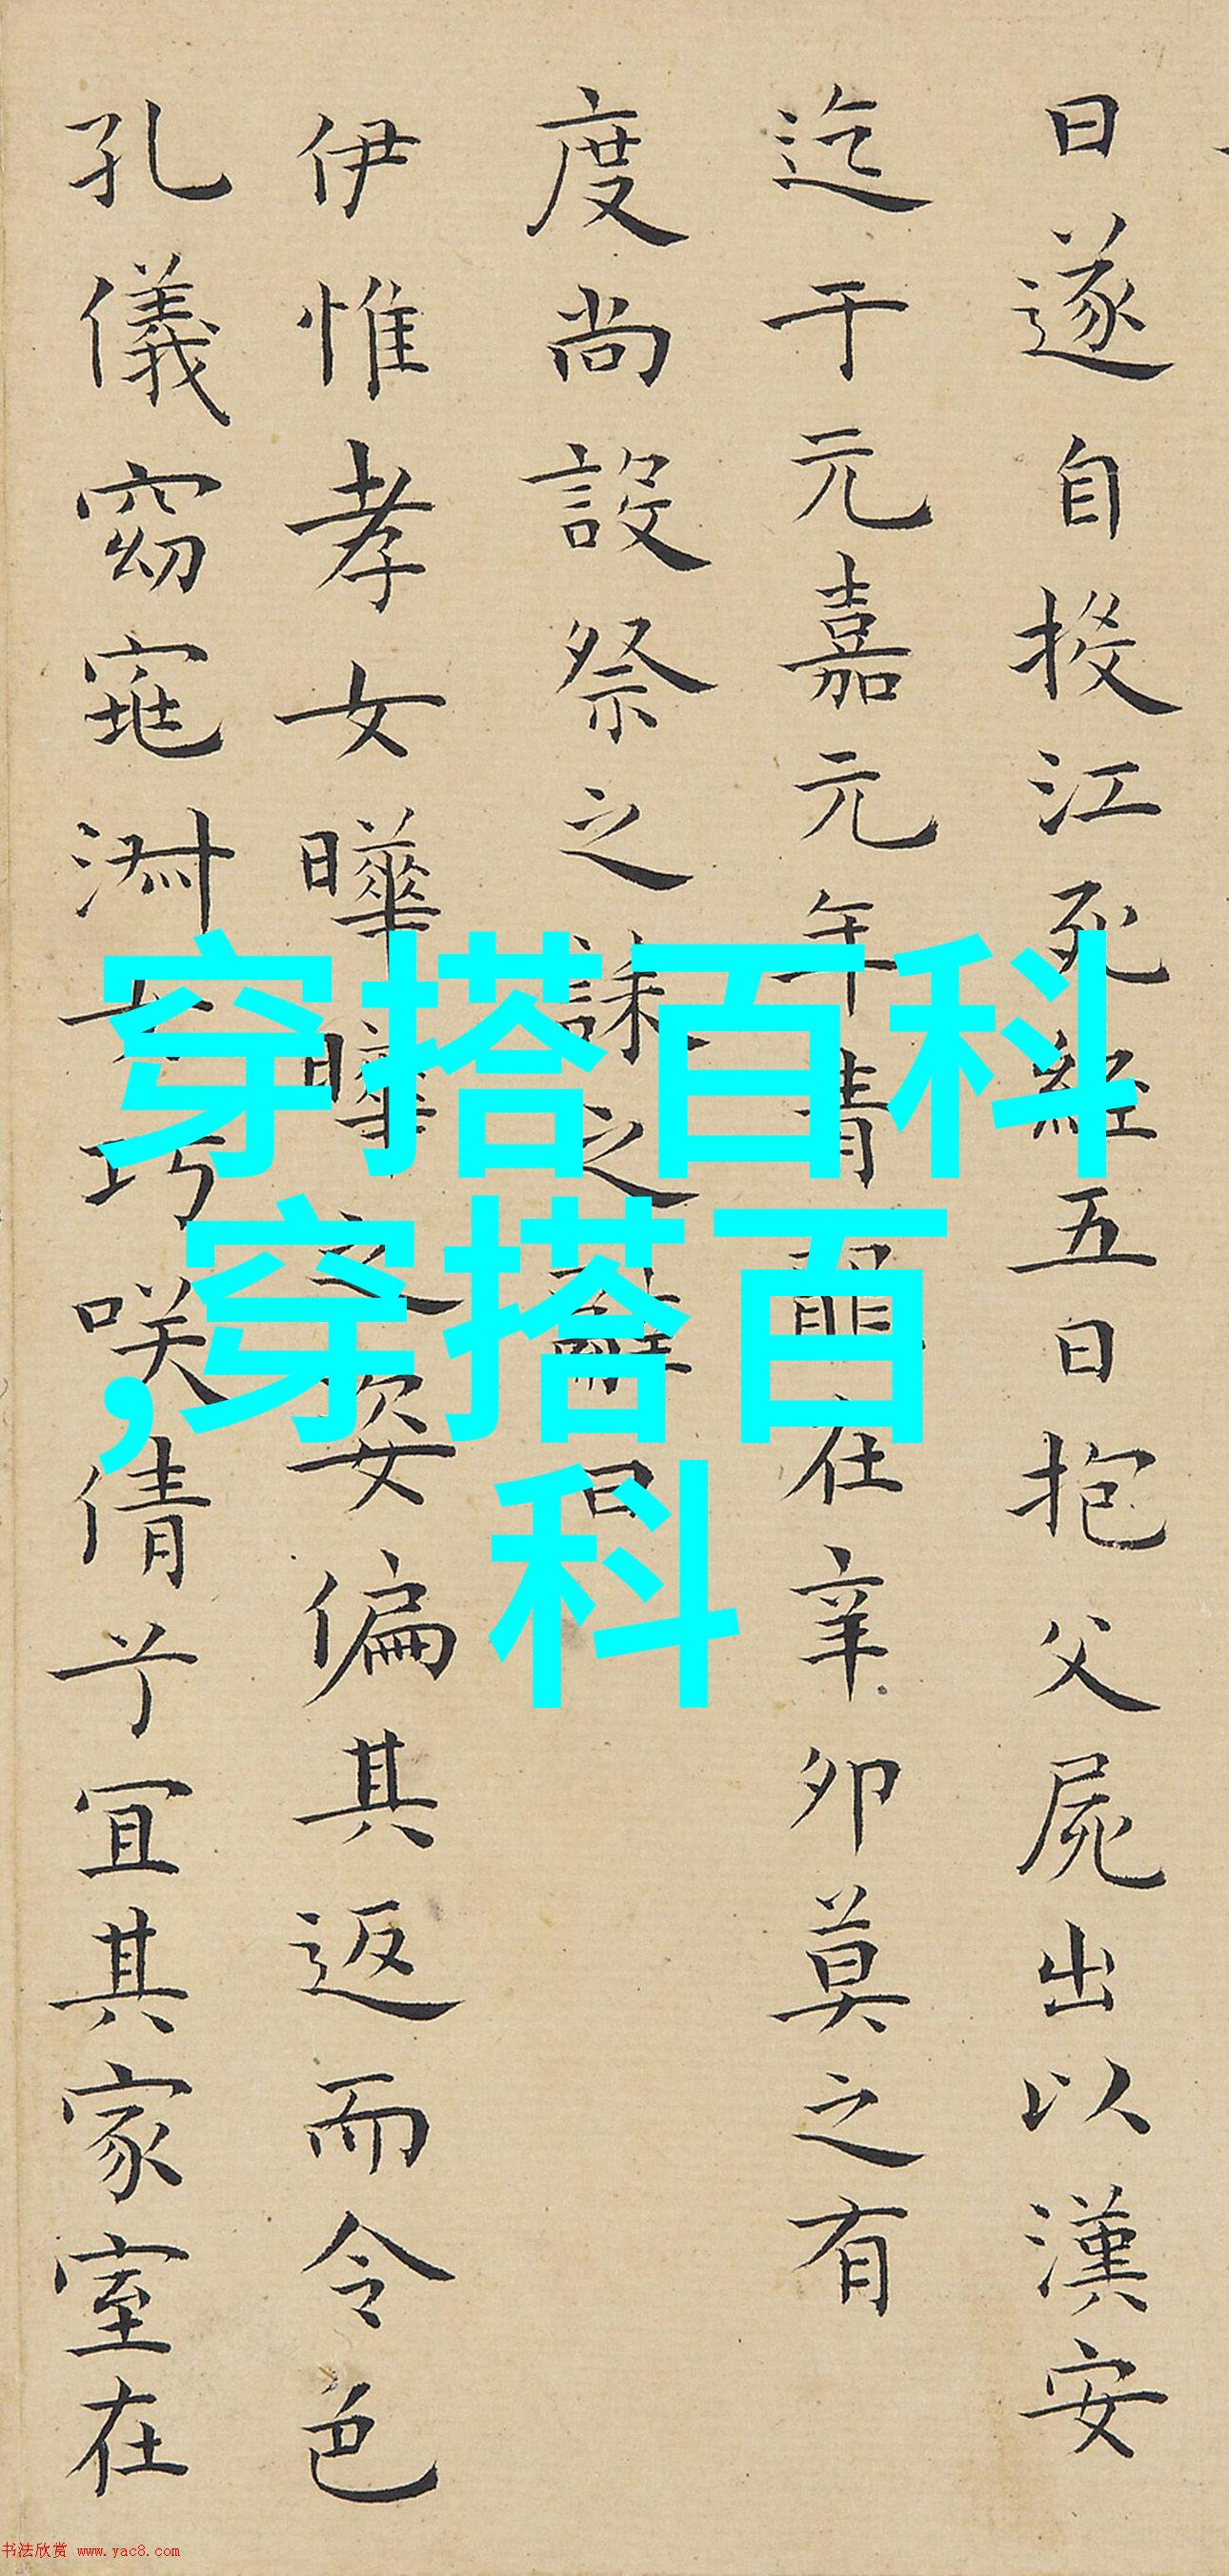 日遂自投江死經五日抱父屍出以漢安
迄于元嘉元年青龍在辛卯莫之有
度尚設祭之誄之辭曰
伊惟孝女曄曄之姿偏其返而令色
孔儀窈窕淑女巧咲倩兮宜其家室在
穿搭百科
,穿搭百
科
书法欣赏 www.yac8.com